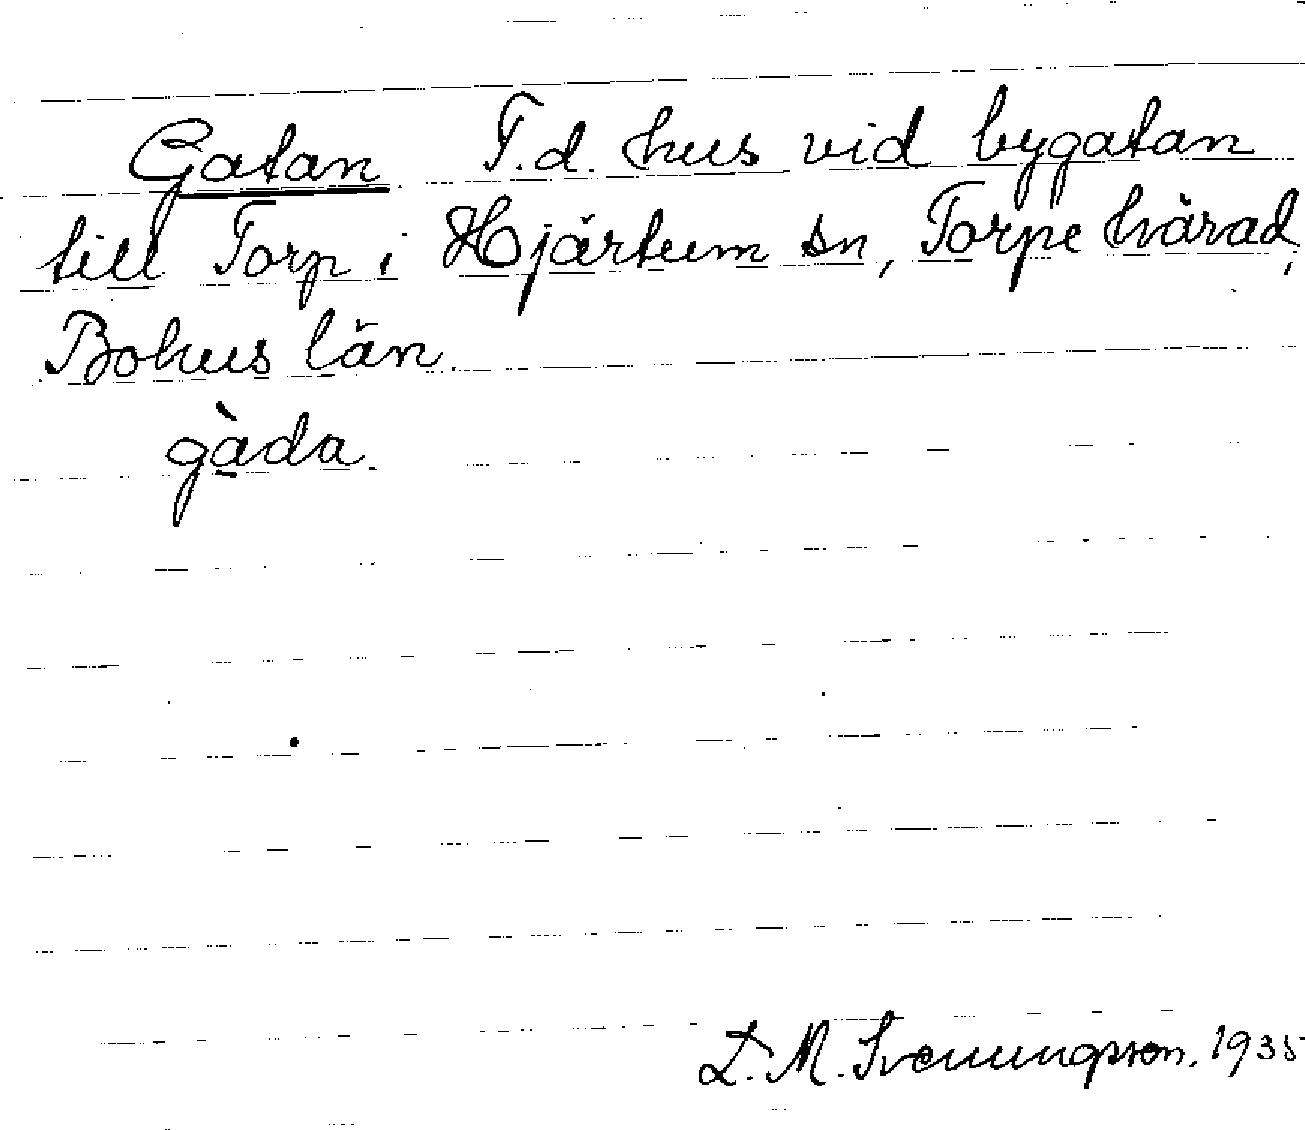 Gatan. F.d. hus vid bygatan
till Torp i Hjärtum sn, Torpe härad,
Bohus län.
gàda.
D. M. Svenungsson. 1935